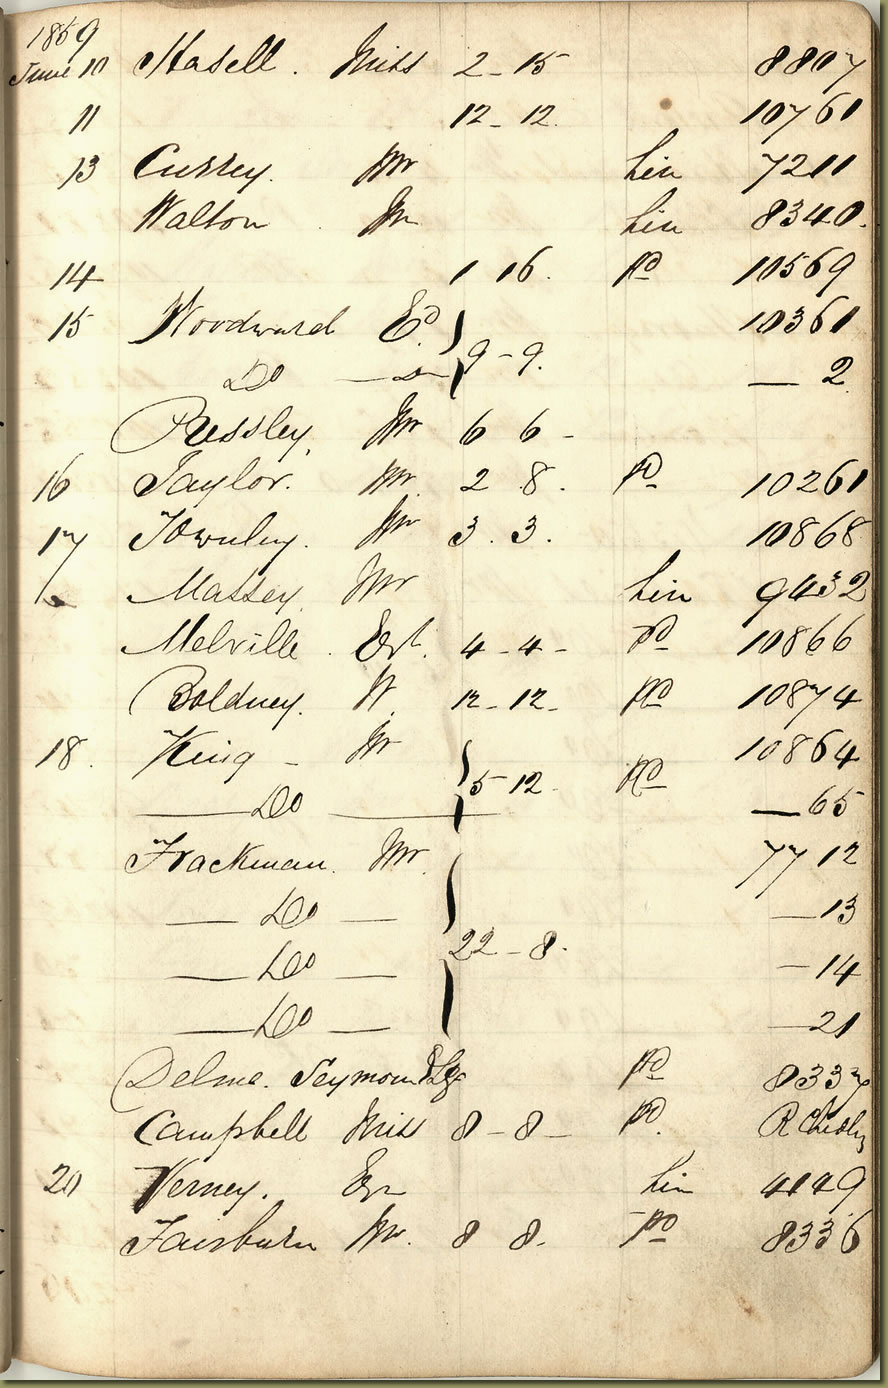 1859
June 10 Hasell. Miss 2 - 15 8807
11 12 - 12. 10761
13 Cursey. Mr Lin 7211
Walton Mr Lin 8340.
14 1 16. Pd 10569
15 Woodward Ed. 10361
Do — Do } 9 - 9. — 2
Pressley. Mr 6 6 -
16 Taylor. Mr. 2 . 8. Pd 10261
17 Townley. Mr 3. 3. 10868
Massey Mr Lin 9432
Melville. Esq. 4 - 4 - Pd 10866
Boldney. W. 12 - 12 - Pd 10874
18. King - Mr 10864
— Do — } 5 12. Pd — 65
Frackman. Mr. 7712
— Do — — 13
— Do — } 22 - 8. — 14
— Do — — 21
Delme. Seymour Esq Pd 8337
Campbell Miss 8 - 8 - Pd. R
20 Verney. Esq Lin 4149
Fairburn Mr. 8 8. Pd 8336